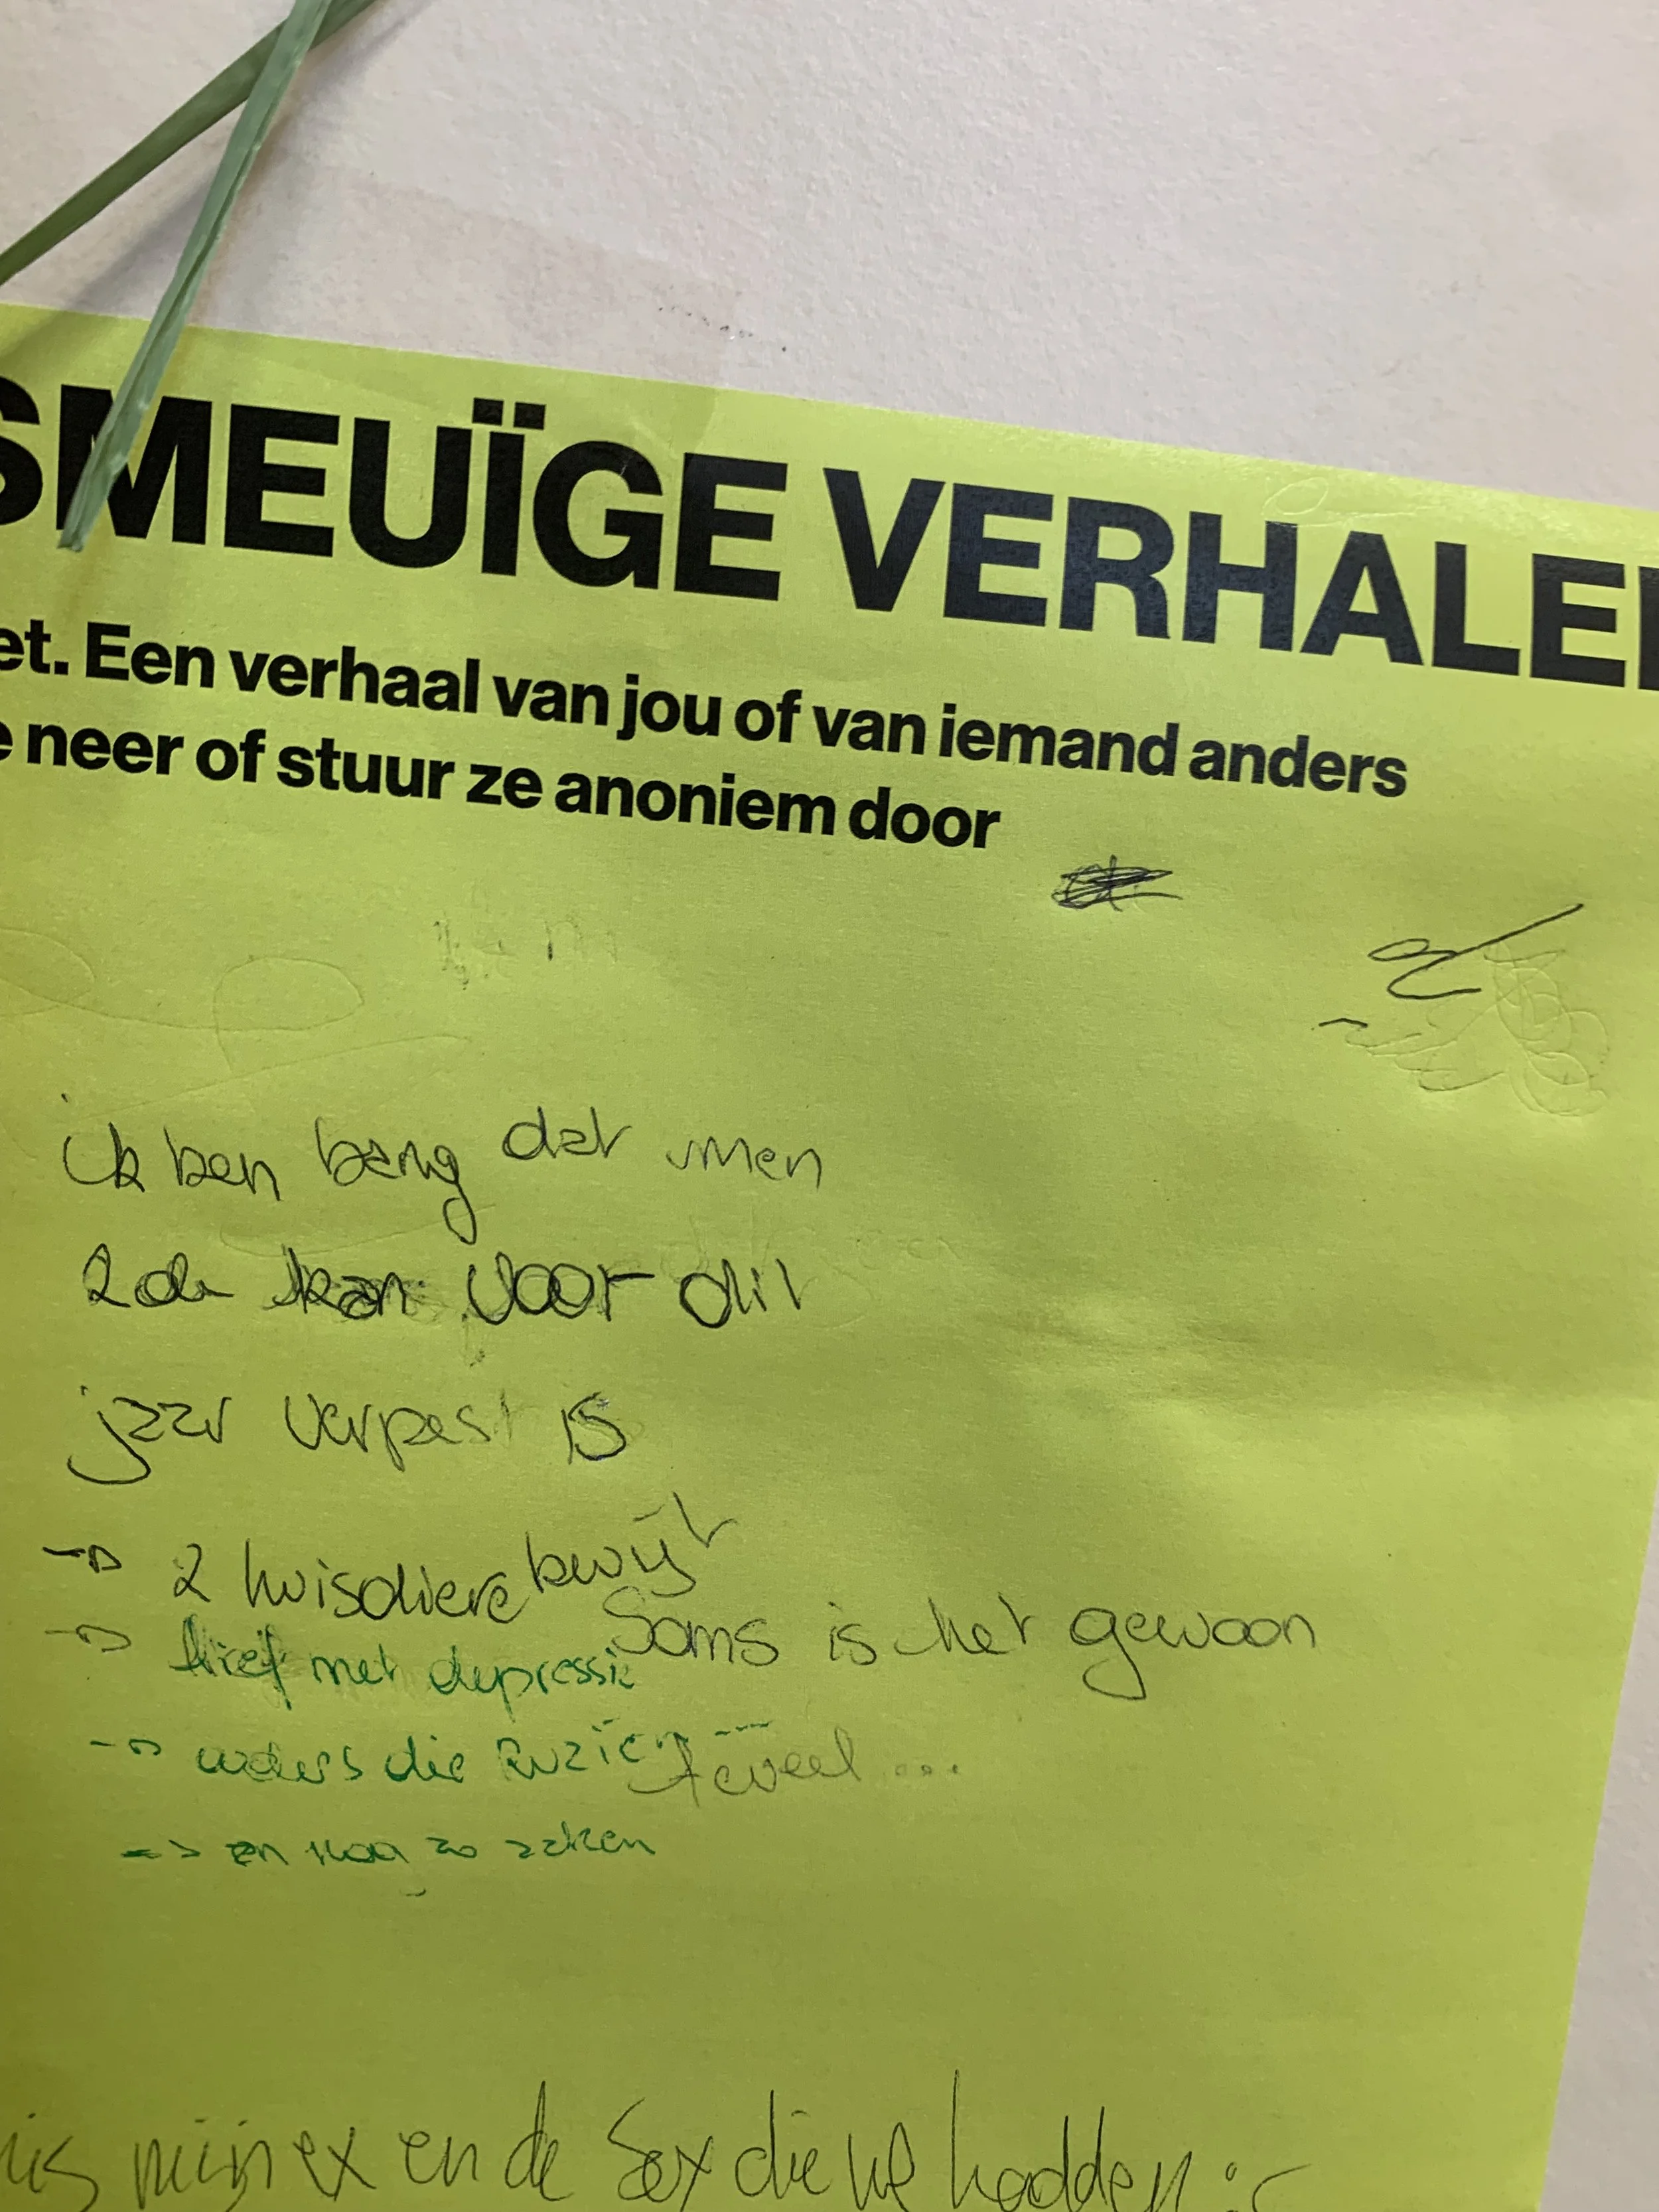 SMEUÏGE VERHALE
et. Een verhaal van jou of van iemand anders
e neer of stuur ze anoniem door
ik ben bang dat men
2de kan voor dit
jaar verpest is
→ 2 huisdiere kwijt
→ lief met depressie
→ ouders die ruziën ---
=> en nog zo zaken
Soms is het gewoon
teveel ...
mis mijn ex en de sex die we hadden :(